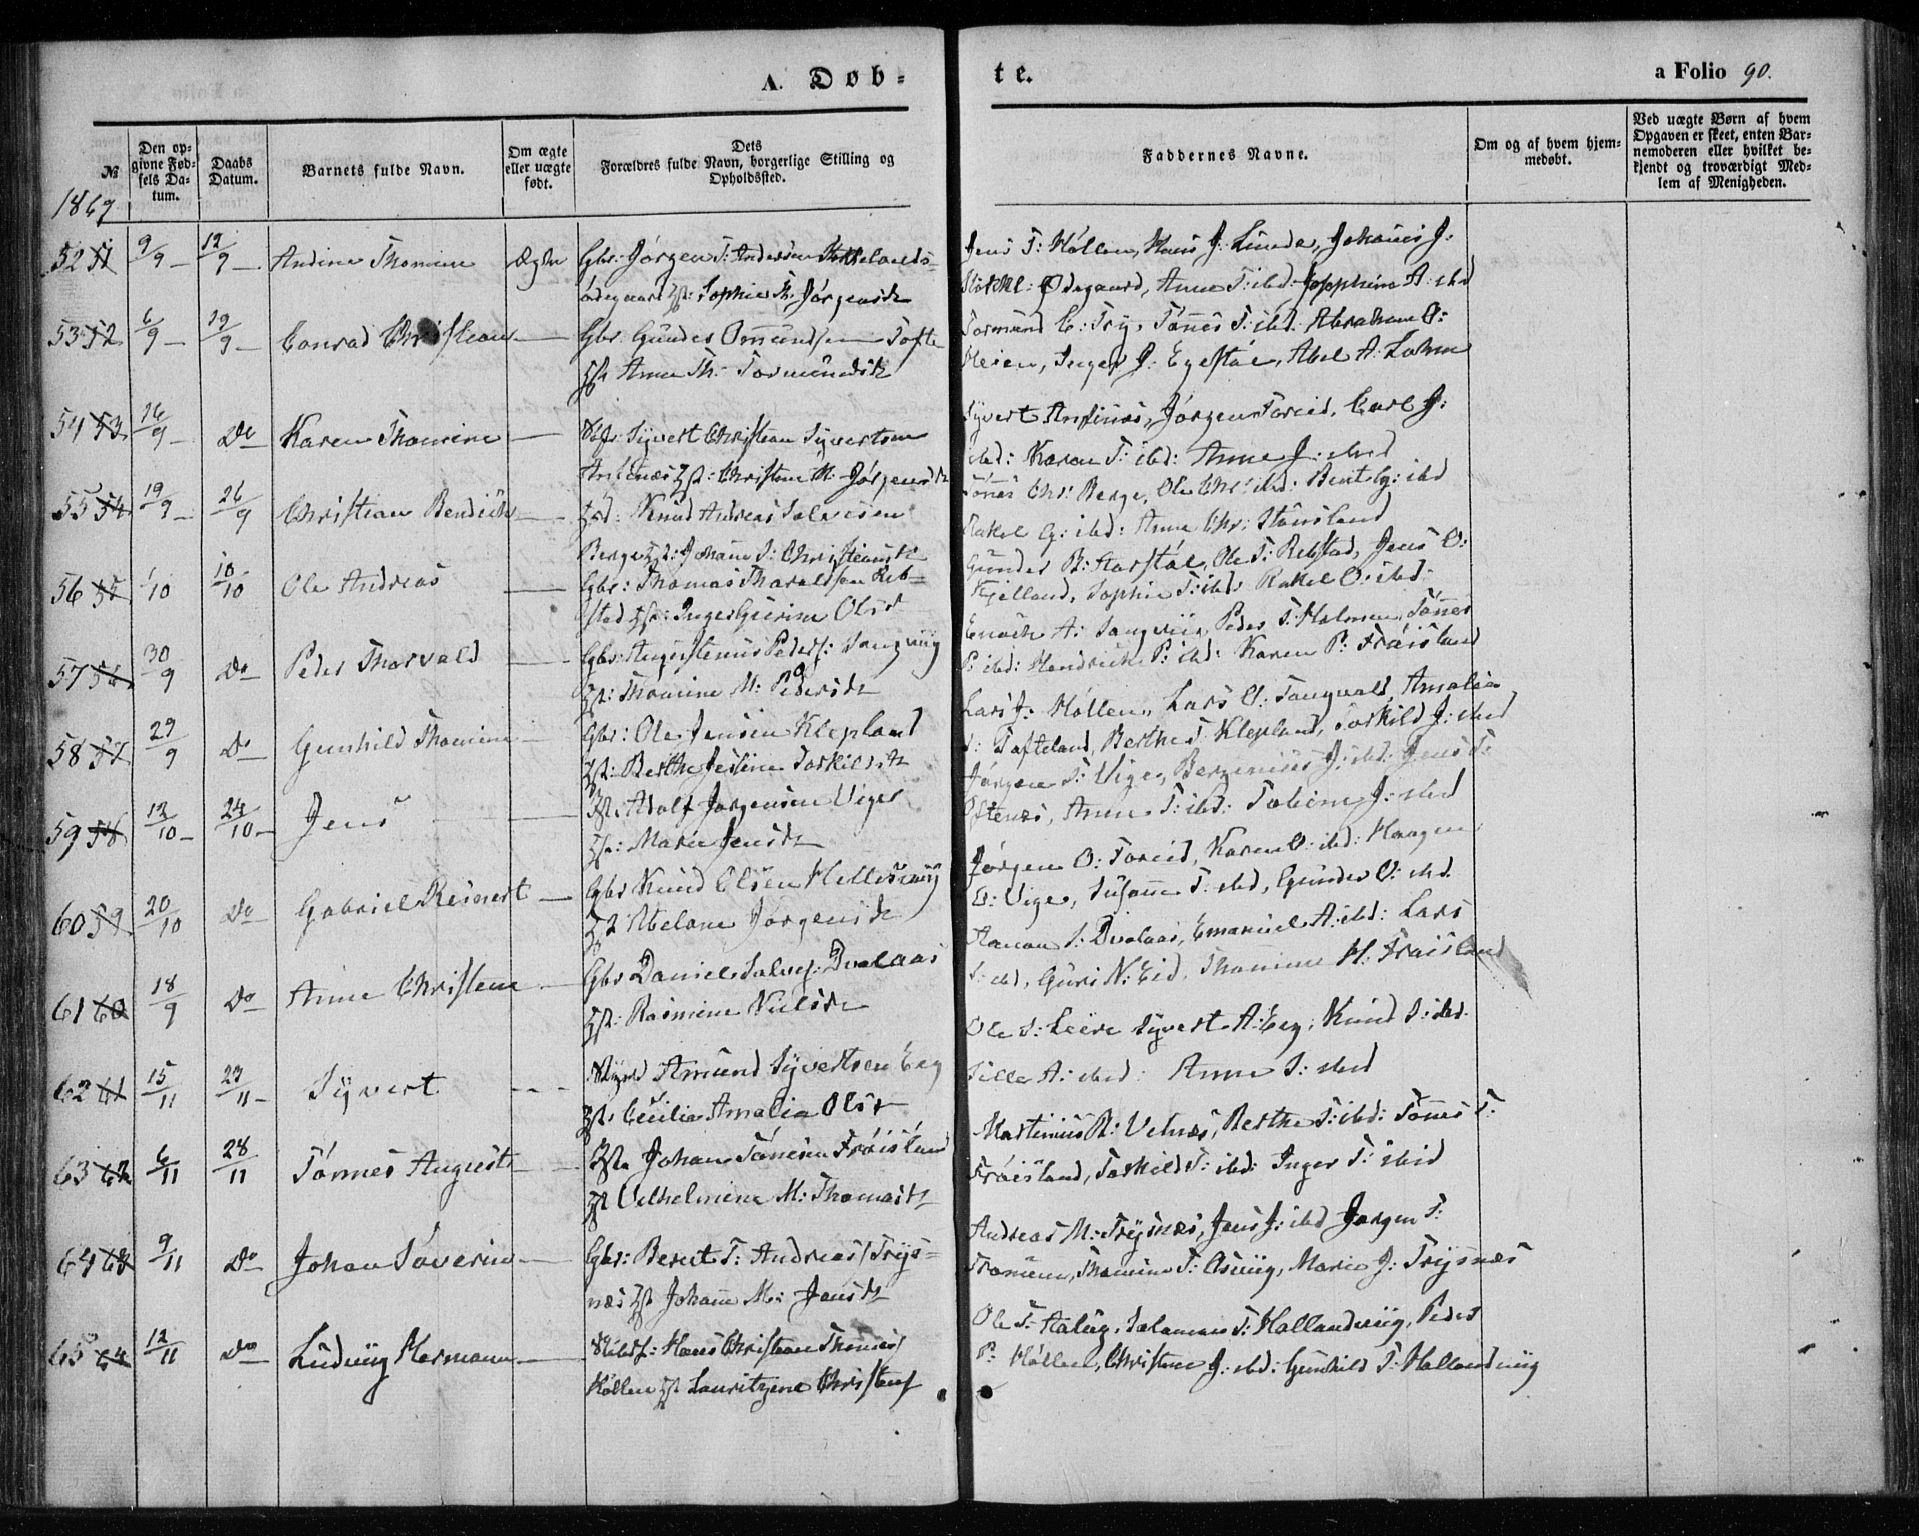 A. Døb-
te.
a Folio 90.
№
Den op-
givne Fød-
sels Da-
tum.
Daabs
Datum.
Barnets fulde Navn.
Om ægte
eller uægte
født.
Dets
Forældres fulde Navn, borgerlige Stilling og
Opholdssted.
Faddernes Navne.
Om og af hvem hjem-
medøbt.
Ved uægte Børn af hvem
Opgaven er skeet, enten Bar-
nemoderen eller hvilket be-
kjendt og troværdigt Med-
lem af Menigheden.
1869
52 51 9/9 - 12/9 - Andine Thomine Ægte Gbr: Jørgen T: Andersen
ødegaard Hst: Sophie Th. Jørgensdt
Jens T: Høllen, Hans J: Lunde, Johannes J:
Ødegaard, Anne T: ibd: Josephine A: ibd
53 52 6/9 - 19/9 - Conrad Christian - Gbr: Gunder Omundsen Tofte
Hst Anne Th: Tormundsdt
Tormund E: Try, Tønnes T: ibd: Abraham O:
Inger J: Egestøl, Abel A: Lohne
54 53 16/9 - Do Karen Thomine - Syvert Christian Syvertsen
Hst: Christine M: Jørgensdt
Syvert Jørgen Toreid, Carl J:
ibd: Karen T: ibd: Anne J: ibd
55 54 19/9 - 26/9 Christian Bendick - Knud Andreas Salvesen
Berge Hst: Johanne S: Christiansdt
Tønnes Chr: Berge, Ole Chr: ibd: Bent G: ibd
Rakel G: ibd: Anne Chr: Stausland
56 55 1/10 10/10 Ole Andreas - Gbr: Thomas Tharaldsen Reb-
stad Hst: Inger Gurine Olsdt
Gunder B: Harstøl, Ole T: Rebstad, Jens O:
Kjelland, Sophie T: ibd: Rakel O: ibd:
57 56 30/9 Do Peder Thorvald - Gbr: Augustinus Peders: Langviig
Hst: Thomine M: Pedersdt
Enoch A: Langviig, Peder T: Holmen, Tønnes
P: ibd: Hendrick P: ibd: Karen P: Frøisland
58 57 29/9 Do Gunhild Thomine - Gbr: Ole Jensen Klepland
Hst: Berthe Jesine Torkildsdt
Lars J: Høllen, Lars O: Tangvald, Amalia
S: Tofteland, Berthe T: Klepland, Torkild J: ibd
59 58 12/10 - 24/10 - Jens - Adolf Jørgensen Viger
Hst: Marie Jensdt
Jørgen T: Vige, J: ibd: Jens T:
Oftenæs, Anne T: ibd: Tobine J: ibd
60 59 20/10 Do Gabriel Reinert - Gbr Knud Olsen Hellesviig
Hst Abelone Jørgensdt
Jørgen O: Toreid, Karen O: ibd: Haagen
O: Vige, Susanne T: ibd, Gunder O: ibd.
61 60 18/9 Do Anne Christine - Gbr Daniel Salves: Dvalaas
Hst: Rasmine Nielsdt
Aanon S: Dvalaas, Emanuel A: ibd: Lars
S: ibd, Guri N: Eid, Thomine H: Frøisland
62 61 15/11 23/11 - Syvert - Amund Syvertsen Eeg
Hst: Cecilia Amalia Olsdt
Ole S: Leire Syvert A: Eeg, Knud S: ibd.
Sille A: ibd: Anne S: ibd
63 62 6/11 28/11 Tønnes August - Johan Tønnesen Frøisland
Hst Vilhelmine M: Thomasdt
Martinius B: Vednes, Berthe T: ibd: Tønnes T:
Frøisland, Torkild T: ibd: Inger T: ibid
64 63 9/11 Do Johan Severin - Gbr: Berent T: Andreas: Trys-
næs Hst Johanne M: Jensdt
Andreas M: Trysnæs, Jens J: ibd Jørgen T:
Thomine T: Osviig, Marie J: Trysnæs
65 64 12/11 Do Ludviig Hermann - Hans Christian Thomas:
Høllen Hst Lauritzene Christens
Ole T: Salamon T: Hallandsviig, Peder
P: Høllen, Christine J: ibd: Gunhild T: Hallandsviig